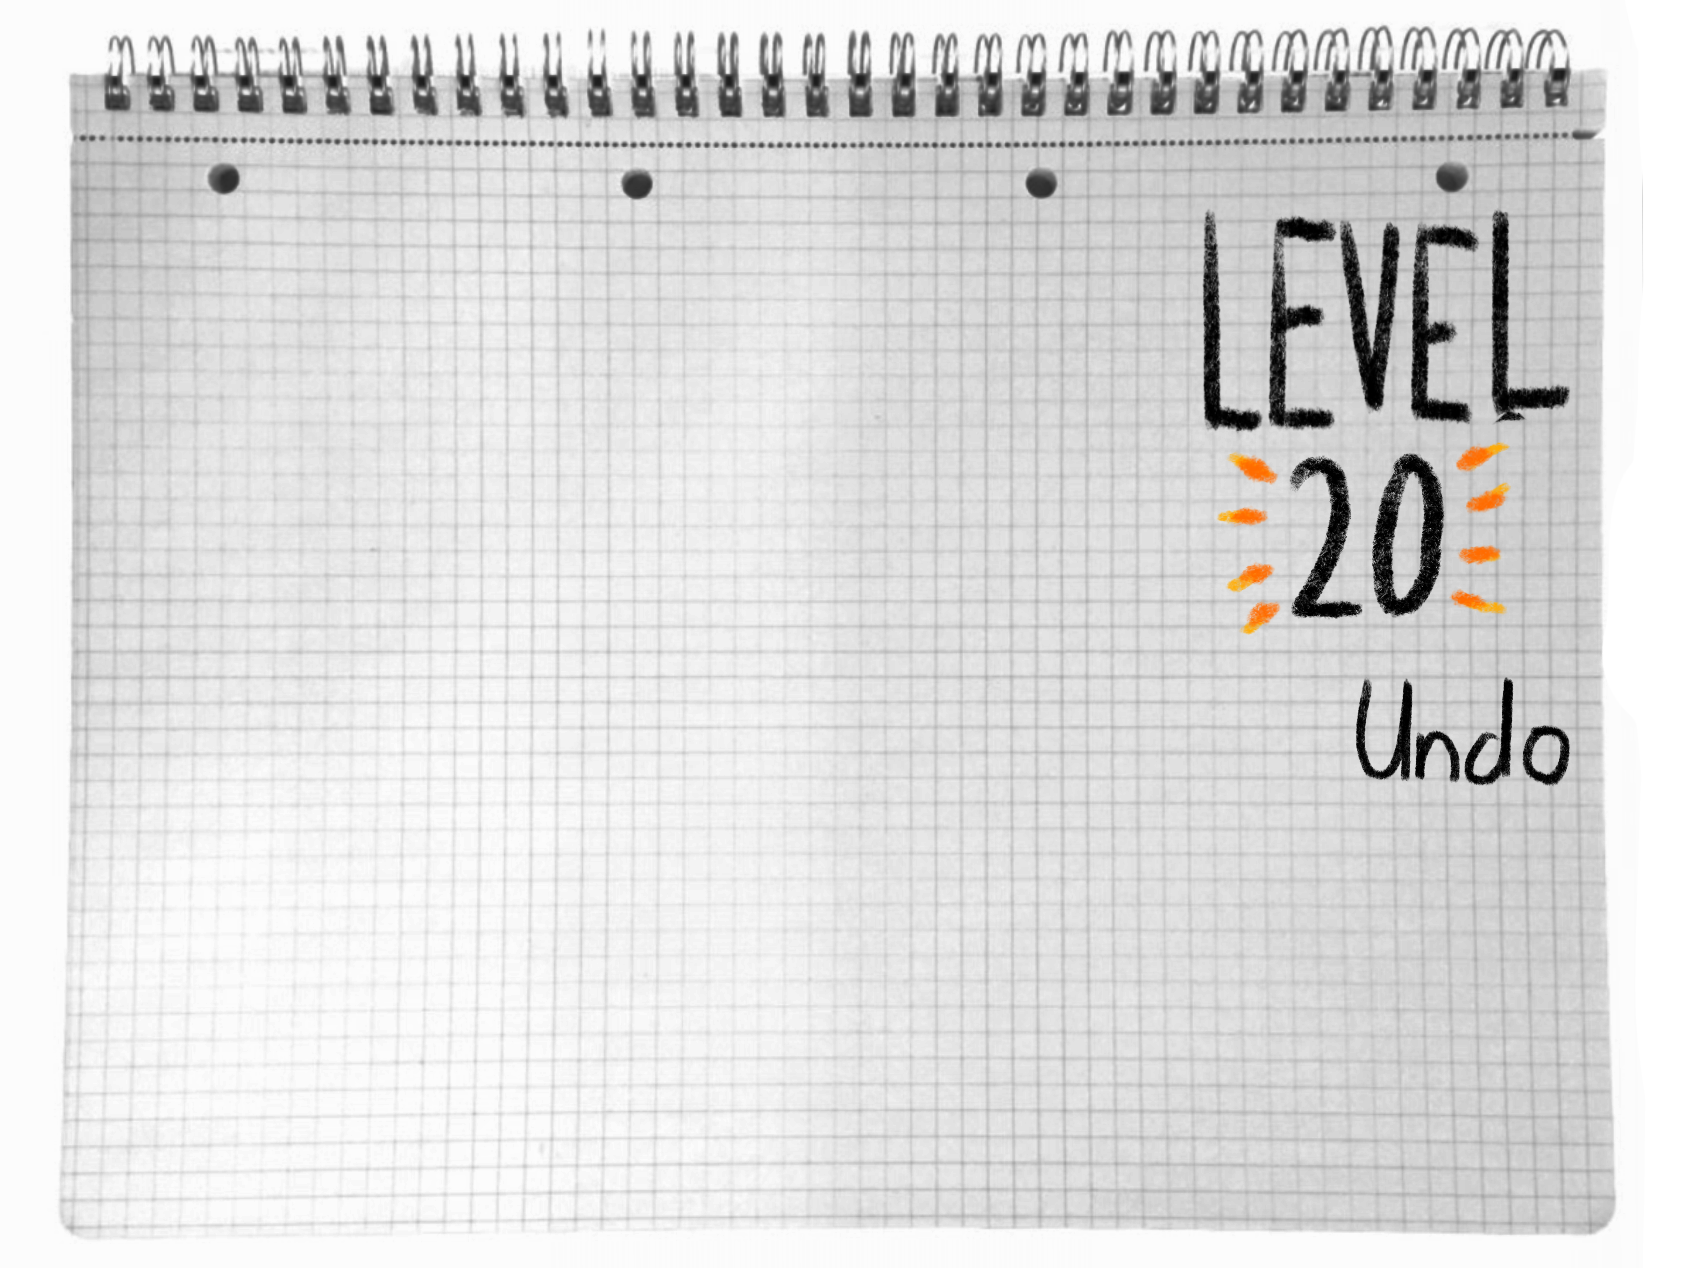 LEVEL
20
Undo